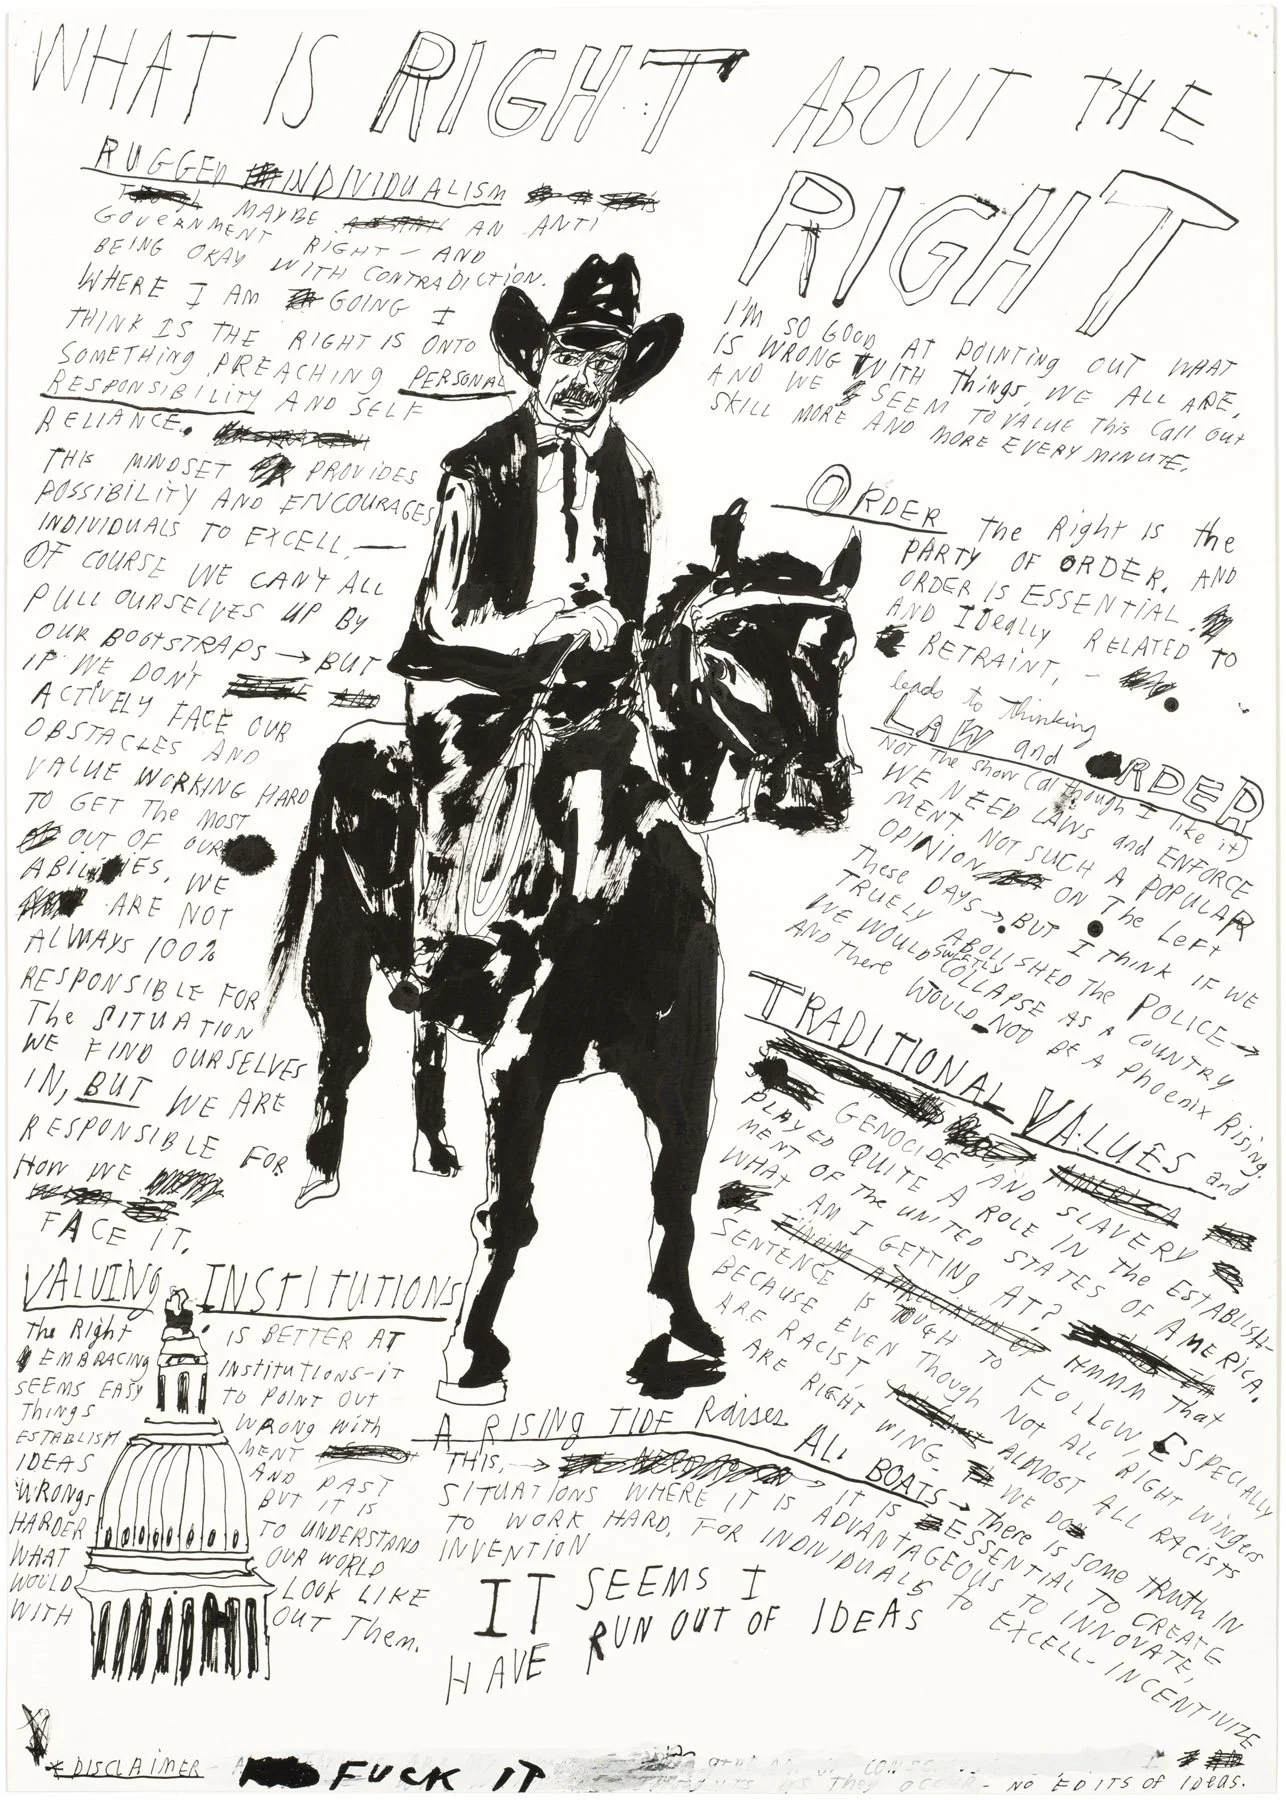 WHAT IS RIGHT ABOUT THE
RIGHT
I'M SO GOOD AT POINTING OUT WHAT
IS WRONG WITH things, WE ALL ARE,
AND WE SEEM TO VALUE This Call out
SKILL MORE AND MORE EVERY MINUTE.
RUGGED INDIVIDUALISM
MAYBE AN ANTI
GOVERNMENT RIGHT - AND
BEING OKAY WITH CONTRADICTION.
WHERE I AM GOING I
THINK IS THE RIGHT IS ONTO
SOMETHING PREACHING PERSONAL
RESPONSIBILITY AND SELF
RELIANCE.
THIS MINDSET PROVIDES
POSSIBILITY AND ENCOURAGES
INDIVIDUALS TO EXCELL, —
OF COURSE WE CAN'T ALL
PULL OURSELVES UP BY
OUR BOOTSTRAPS → BUT
IF WE DON'T
ACTIVELY FACE OUR
OBSTACLES AND
VALUE WORKING HARD
TO GET The MOST
OUT OF OUR
ABILITIES, WE
ARE NOT
ALWAYS 100%
RESPONSIBLE FOR
The SITUATION
WE FIND OURSELVES
IN, BUT WE ARE
RESPONSIBLE FOR
HOW WE
FACE IT.
ORDER The Right IS the
PARTY OF ORDER. AND
ORDER IS ESSENTIAL.
AND IDeally RELATED TO
RETRAINT, -
leads to thinking
LAW and ORDER
NOT The show (although I like it)
WE NEED LAWS and ENFORCE
MENT. NOT SUCH A POPULAR
OPINION ON The LEFT
These DAYS → BUT I THINK IF WE
TRUELY ABOLISHED The POLICE →
WE WOULD SWIFTLY COLLAPSE AS A COUNTRY
AND There WOULD NOT BE A Phoenix Rising.
TRADITIONAL VALUES and
GENOCIDE, AND SLAVERY
PLAYED QUITE A ROLE IN The ESTABLISH-
MENT OF The UNITED STATES OF AMERICA.
WHAT AM I GETTING AT? HMMM That
SENTENCE IS TOUGH TO FOLLOW, ESPECIALLY
BECAUSE EVEN Though NOT ALL RIGHT Wingers
ARE RACIST, ALMOST ALL RACISTS
ARE RIGHT WING. WE DO
VALUING INSTITUTIONS
The Right IS BETTER AT
EMBRACING INSTITUTIONS-IT
SEEMS EASY TO POINT OUT
Things WRONG With
ESTABLISH MENT
IDEAS AND PAST
"WRONGS BUT IT IS
HARDER TO UNDERSTAND
WHAT OUR WORLD
WOULD LOOK LIKE
WITH OUT Them.
A RISING TIDE Raises ALL BOATS → There IS SOME TRuth IN
THIS, → IT IS ESSENTIAL TO CREATE
SITUATIONS WHERE IT IS ADVANTAGEOUS TO INNOVATE,
TO WORK HARD, FOR INDIVIDUALS TO EXCELL- INCENTIVIZE
INVENTION
IT SEEMS I
HAVE RUN OUT OF IDEAS
*DISCLAIMER - FUCK IT
Thoughts as they occur - NO EDITS OF IDeas.